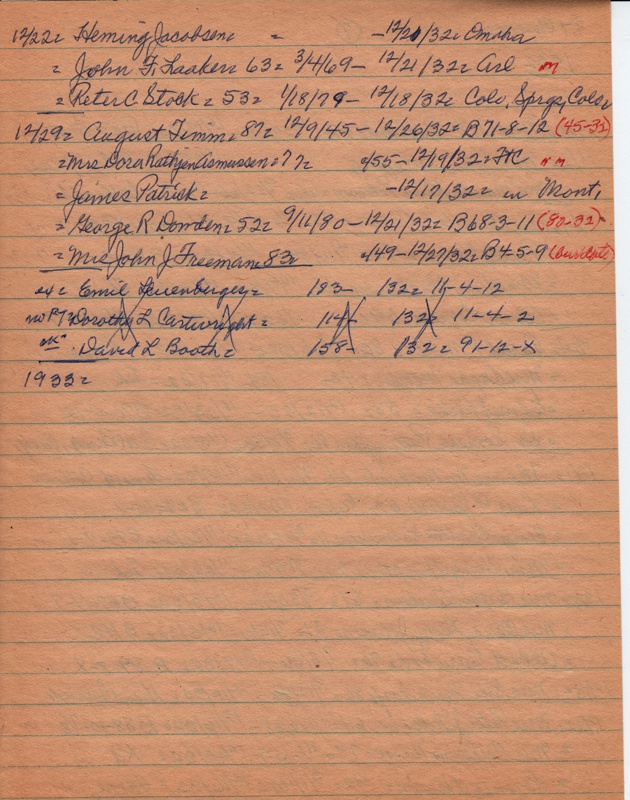 12/22= Heming Jacobsen= = -12/20/32= Omaha
= John F. Laaker= 63= 3/4/69- 12/21/32= Arl m
= Peter C Stock= 53= 1/18/79- 12/18/32= Colo, Sprgs, Colo=
12/29= August Timm= 87= 12/9/45-12/26/32= B71-8-12 (45-32)
= Mrs Dora Rathjen Asmussen= 77= /55-12/19/32= FtC n m
= James Patrick= -12/17/32= in Mont.
= George R. Dowden= 52= 9/11/80-12/21/32= B68-3-11 (80-32)
= Mrs John J. Freeman= 83= /49-12/27/32= B4-5-9 (our date)
ex= Emil Leuenberger= 183- 132= 16-4-12
no PT= Dorothy L Cartwright= 114- 132= 11-4-2
David L Booth= 158- 132= 91-12-X
1933=